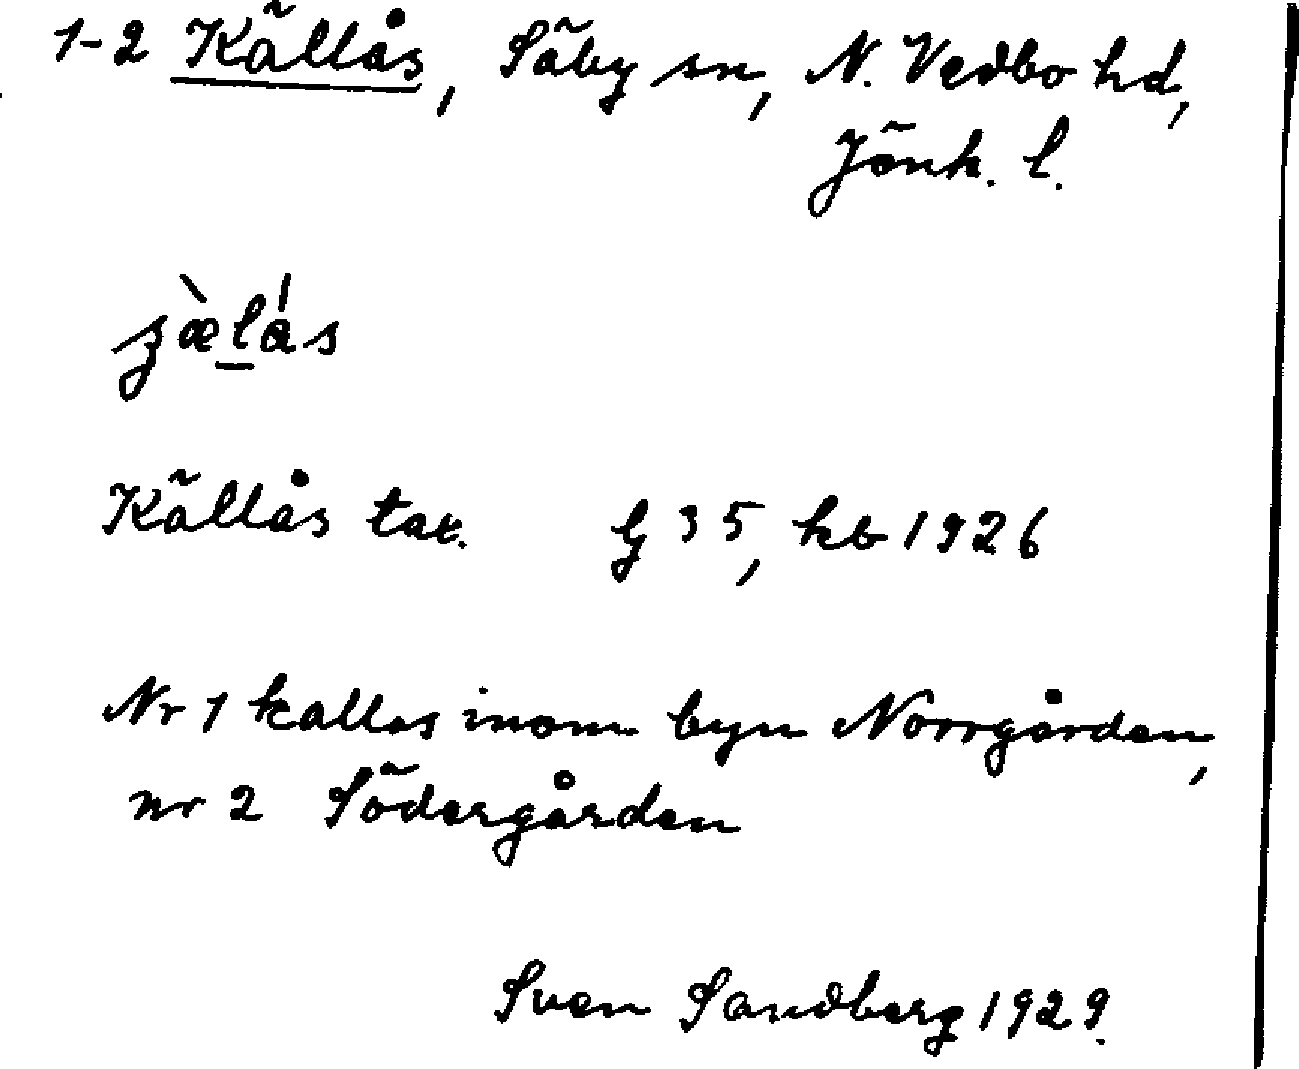 1-2 Källås, Säby sn, N. Vedbo hd,
Jönk. l.
Källås tax. G 35, kb 1926
Nr 1 kallas inom byn Norrgården,
nr 2 Södergården
Sven Sandberg 1929.